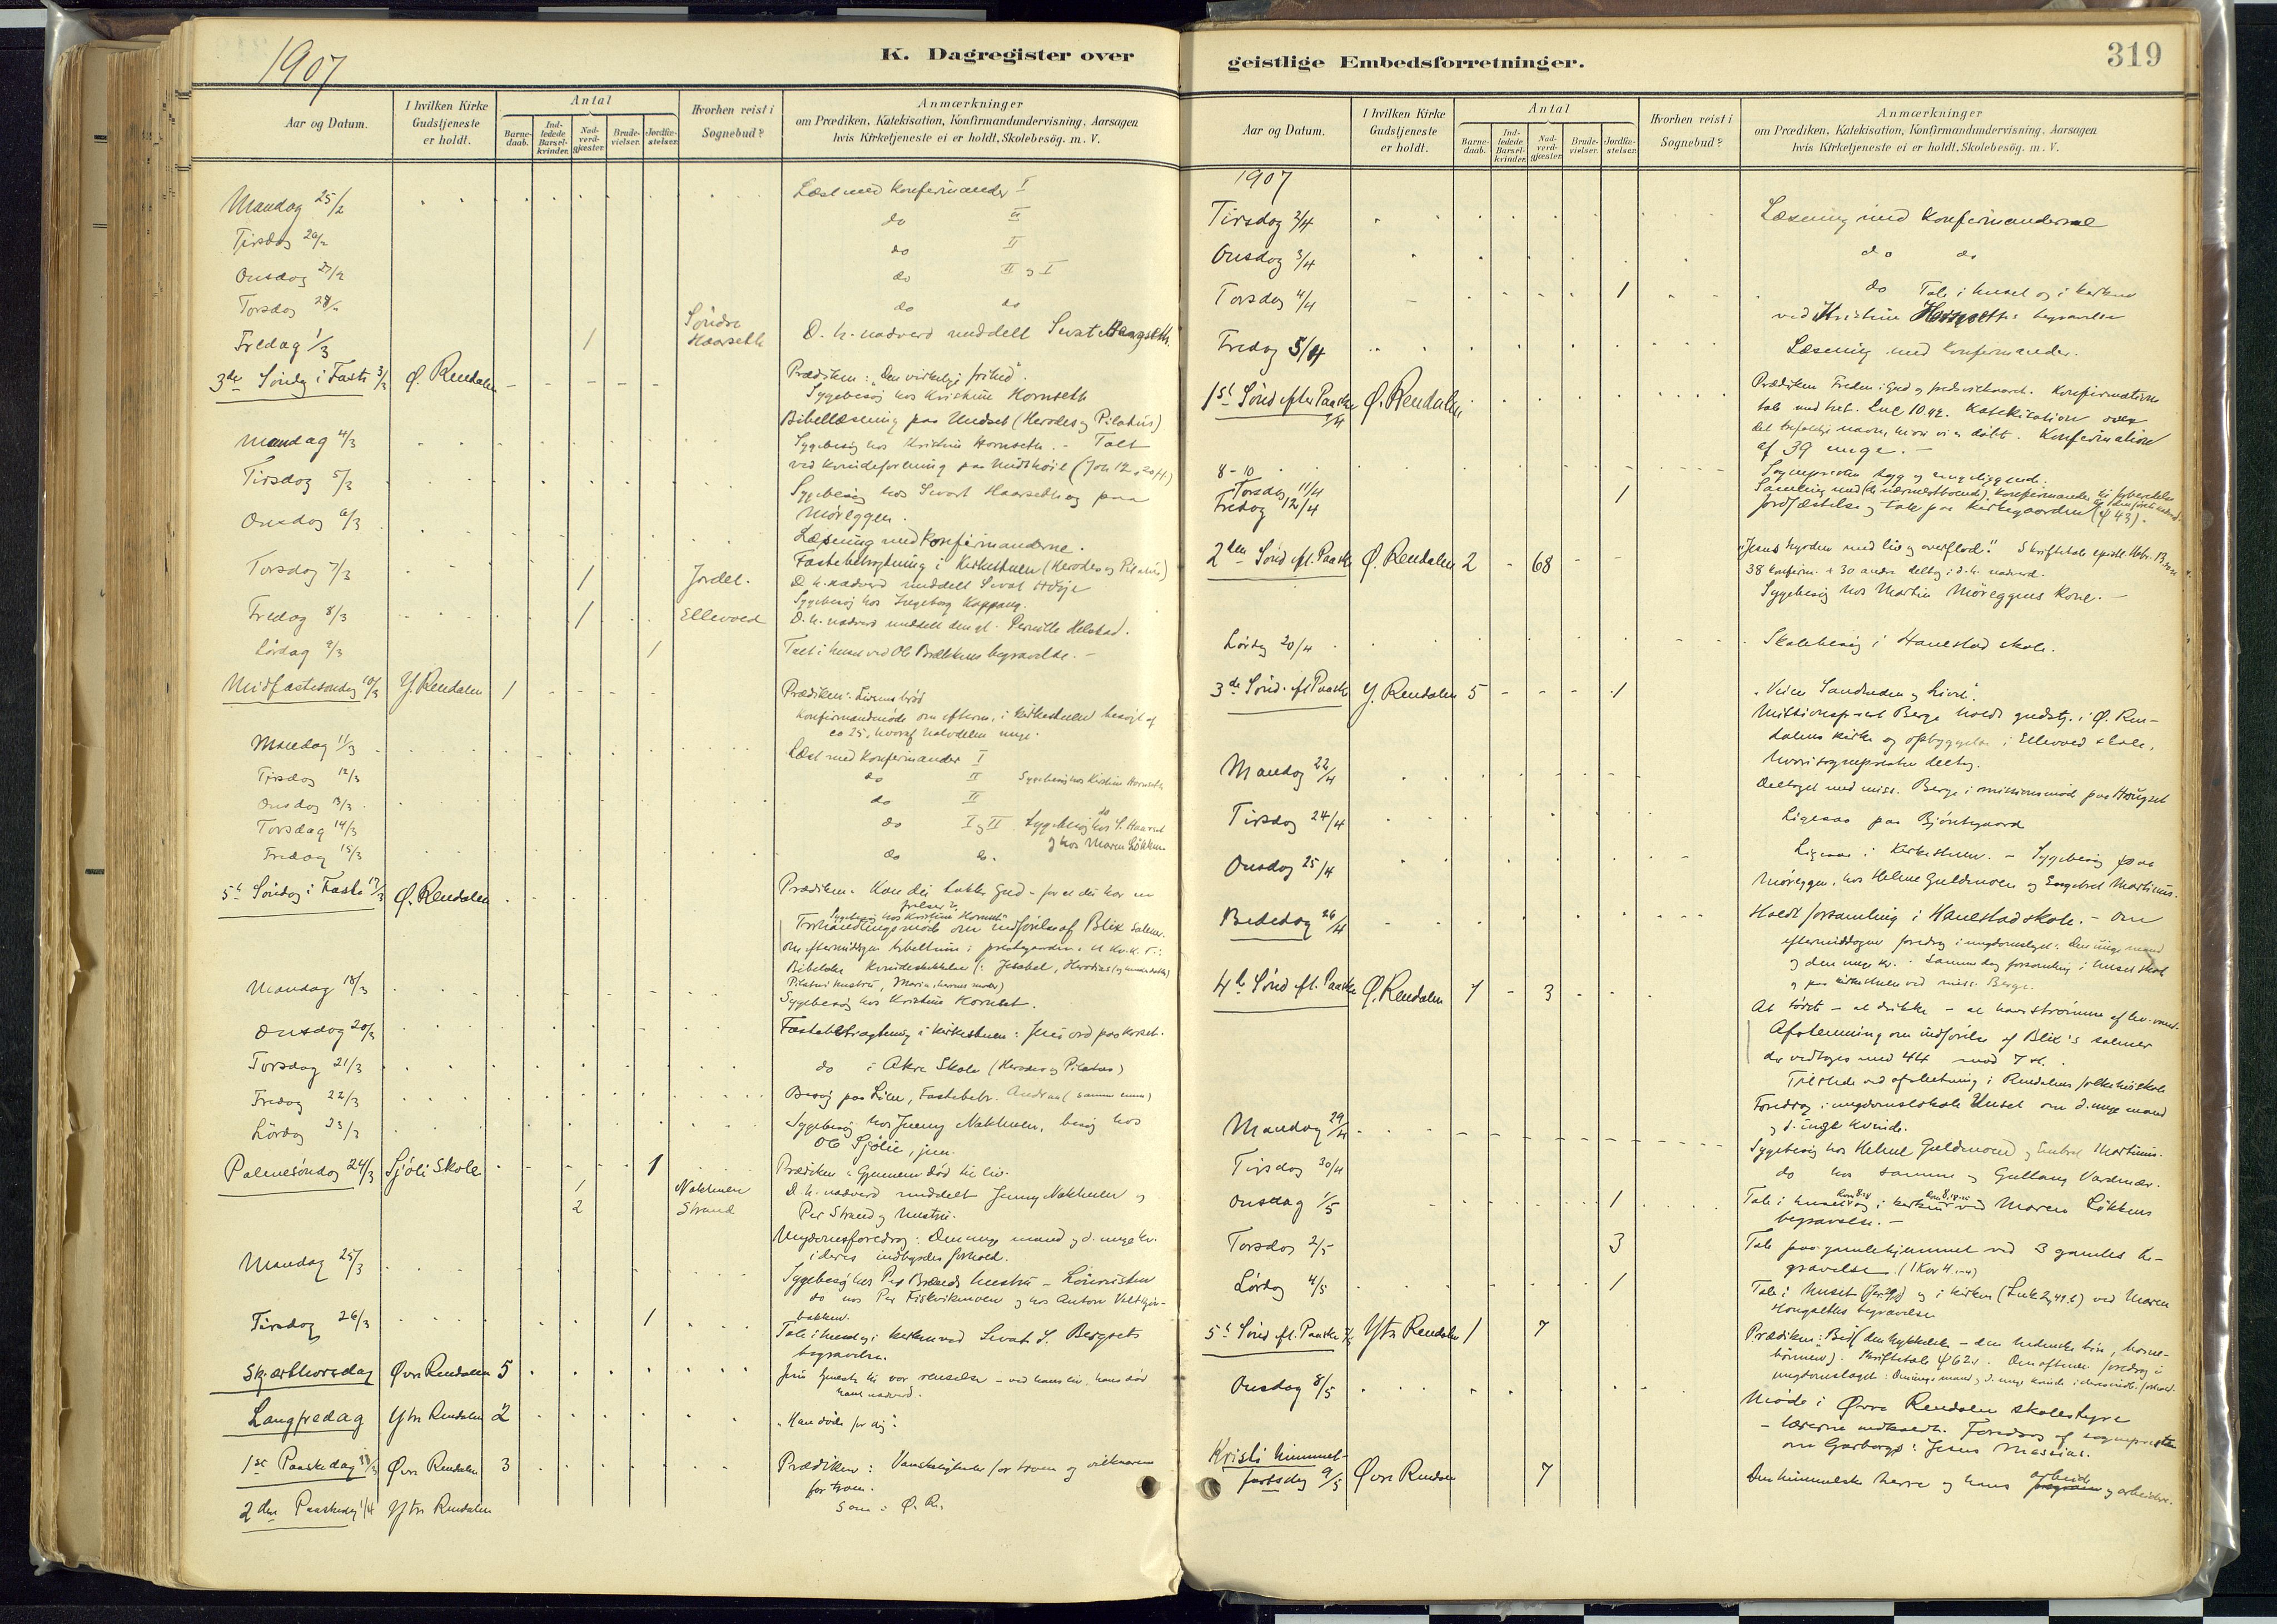 1907
K. Dagregister over
Aar og Datum.
I hvilken Kirke Gudstjeneste er holdt.
Antal
Barnedaab.
Indledede Barselkvinder.
Nadverdgjæster.
Brudevielser.
Jordfæstelser.
Hvorhen reist i Sognebud?
Anmærkninger
om Prædiken, Katekisation, Konfirmandundervisning. Aarsagen
hvis Kirketjeneste ei er holdt, Skolebesög. m. V.
Mandag 25/2 Læst med Konfirmander I
Tirsdag 26/2 do II
Onsdag 27/2 do II
Torsdag 28/2 do II og I
do do
Fredag 1/3 1 Söndre Haarseth D. h. nadverd meddelt Sivat Haarseth.
3de Söndag i Faste 3/3 Ø. Rendalen Prædiken: "Den virkelige frihed".
Sygebesög hos Kristine Hornseth
Bibellæsning paa Undset (Herodes og Pilatus)
Mandag 4/3 Sygebesög hos Kristine Hornseth. - Talt
ved kvindeforening paa Midsköie (Joh 12, 20 ff)
Tirsdag 5/3 Sygebesög hos Sivart Haarseth og paa
Möreggen.
Onsdag 6/3 Læsning med Konfirmanderne.
Torsdag 7/3 Fastebetragtning i Kirkestuen (Herodes og Pilatus)
1 Jordet. D. h. nadverd meddelt Sivat
Fredag 8/3 Sygebesög hos Ingeborg Kappang.
1 Ellevold D. h. nadverd meddelt Pernille Helstad.
Lördag 9/3 1 Talt i huset ved Ole Brækkens begravelse. -
Midfastesöndag 10/3 Y. Rendalen 1 Prædiken: Livens bröd
Konfirmandmöde om efterm. i Kirkestuen besögt af
ca 25, hvoraf halvdelen unge.
Mandag 11/3 Læst med Konfirmander I
Tirsdag 12/3 do II Sygebesög hos Kristine Hornseth
Onsdag 13/3 do II
Torsdag 14/3 do I og II Sygebesög hos S. Haarset
og hos Maren Lökken
Fredag 15/3 do do
5te Söndag i Faste 17/3 Ø. Rendalen Prædiken.
Sygebesög hos Kristine Hornseth
Forhandlingsmöde om indförelse af Blix salmer.
Bibelske Kvindeskikkelser (: Jesabel, Herodias
Pilatus' hustru, Maria,
Mandag 18/3 Sygebesög hos Kristine Hornset.
Onsdag 20/3 Fastebetragtning i Kirkestuen: Jesu ord paa korset.
Torsdag 21/3 do i Akre Skole (Herodes og Pilatus)
Fredag 22/3 Besög paa Lien, Fastebetr.
Lördag 23/3 Sygebesög hos Jenny Nakkelien, besög hos
Ole Sjölie, jun.
Palmesöndag 24/3 Sjöli Skole 1 Prædiken: Gjennem död til liv.
1 Nakkelien D. h. nadverd meddelt Jenny Nakkelien og
2 Strand Per Strand og hustru.
Ungdomsforedrag: Den unge mand og d. unge kv.
i deres indbyrdes forhold.
Mandag 25/3 Sygebesög hos Per Brænds hustru -
do hos Per Fiskvikmoen og hos Anton
bakken.
Tirsdag 26/3 1 Tale i huset og i kirken ved Sivat S. Bergsets
begravelse.
Skjærthorsdag Øvre Rendalen 5 Jesu tjeneste til vor renselse - ved hans liv, hans död
hans nadverd.
Langfredag Ytre Rendalen 2 "Han döde for mig".
1ste Paaskedag 31/3 Øvre Rendalen 3 Prædiken: Vanskeligheder for troen og vilkaarene
for troen.
2den Paaskedag 1/4 Ytre Rendalen Som i Ø. R.
geistlige Embedsforretninger.
319
Aar og Datum.
I hvilken Kirke Gudstjeneste er holdt.
Antal
Barnedaab.
Indledede Barselkvinder.
Nadverdgjæster.
Brudevielser.
Jordfæstelser.
Hvorhen reist i Sognebud?
Anmærkninger
om Prædiken, Katekisation, Konfirmandundervisning. Aarsagen
hvis Kirketjeneste ei er holdt, Skolebesög. m. V.
1907
Tirsdag 2/4 Læsning med Konfirmanderne
Onsdag 3/4 do do
Torsdag 4/4 1 do Tale i huset og i kirken
ved Kristine begravelse
Fredag 5/4 Læsning med Konfirmander.
1ste Sönd. efter Paaske 7/4 Ø. Rendalen Prædiken Freden i Gud og Konfirmations
tale Luc 10,42. Katekisation over
det trefoldige navn, hvori vi er döbt. Konfirmation
af 39 unge. -
8-10 Sognepresten syg og sengeliggende.
Torsdag 11/4 Samling med (de nærmestboende) konfirmander til
Fredag 12/4 1 Jordfæstelse og tale paa Kirkegaarden (ψ 43).
2den Sönd. eft. Paaske Ø. Rendalen 2 68 "Jesus hyrden med liv og overflod." Skriftetale
38 konfirm. + 30 andre deltog i d. h. nadverd.
Sygebesög hos Martin Möreggens Kone. -
Lördag 20/4 Skolebesög i Hanestad skole.
3de Sönd. eft. Paaske Y. Rendalen 5 1 "Veien Sandheden og Livet".
Missionsprest Berge holdt gudstj. i Ø. Ren-
dalens kirke og opbyggelse i Ellevold skole,
hvori sognepresten deltog.
Mandag 22/4 Deltaget med miss. Berge i missionsmöde paa Haugset
Tirsdag 24/4 Ligesaa paa Bjöntegaard
Onsdag 25/4 Ligesaa i Kirkestuen. - Sygebesög paa
Möreggen, hos Helene Guldmoen og Engebret Martinus.
Bededag 26/4 Holdt forsamling i Hanestad skole. - Om
eftermiddagen foredrag i ungdomslaget: Den unge mand
og den unge kv. Samme dag forsamling i Unset skole
og paa kirkestuen ved miss. Berge.
4de Sönd. eft. Paaske Ø. Rendalen 7 3 At törste - at drikke - at have strömme af lev. vand.
Afstemning om indförelse af Blix's salmer
der vedtoges med 44 mod 7 st.
Tilstede ved afslutning i Rendalens folkehöiskole
Foredrag i ungdomslaget Unset om d. unge mand
og d. unge Kvinde.
Mandag 29/4 Sygebesög hos Helene Guldmoen og Embret Martinus.
Tirsdag 30/4 do hos samme og Gullaug
Onsdag 1/5 1 Tale i huset og i kirken ved Maren Lökkens
begravelse. -
Torsdag 2/5 3 Tale paa gamlehjemmet ved 3 gamles be-
gravelse.
Lördag 4/5 1 Tale i huset og i kirken ved Maren
begravelse
5te Sönd. eft. Paaske 5/5 Ytre Rendalen 1 7 Prædiken: Bed (den hykkelske - den hedenske bön, barne-
bönnen). Skriftetale ψ 62 Om efterm. foredrag i
ungdomslaget: Den unge mand og d. unge kvinde
Onsdag 8/5 Möde i Øvre Rendalen skolestyre
- lærerne indkaldt. Foredrag af sognepresten
om Garborgs: Jesus Messias.
Kristi himmel-
fartsdag 9/5 Øvre Rendalen 7 Den himmelske herre og hans arbeide og arbeidere.